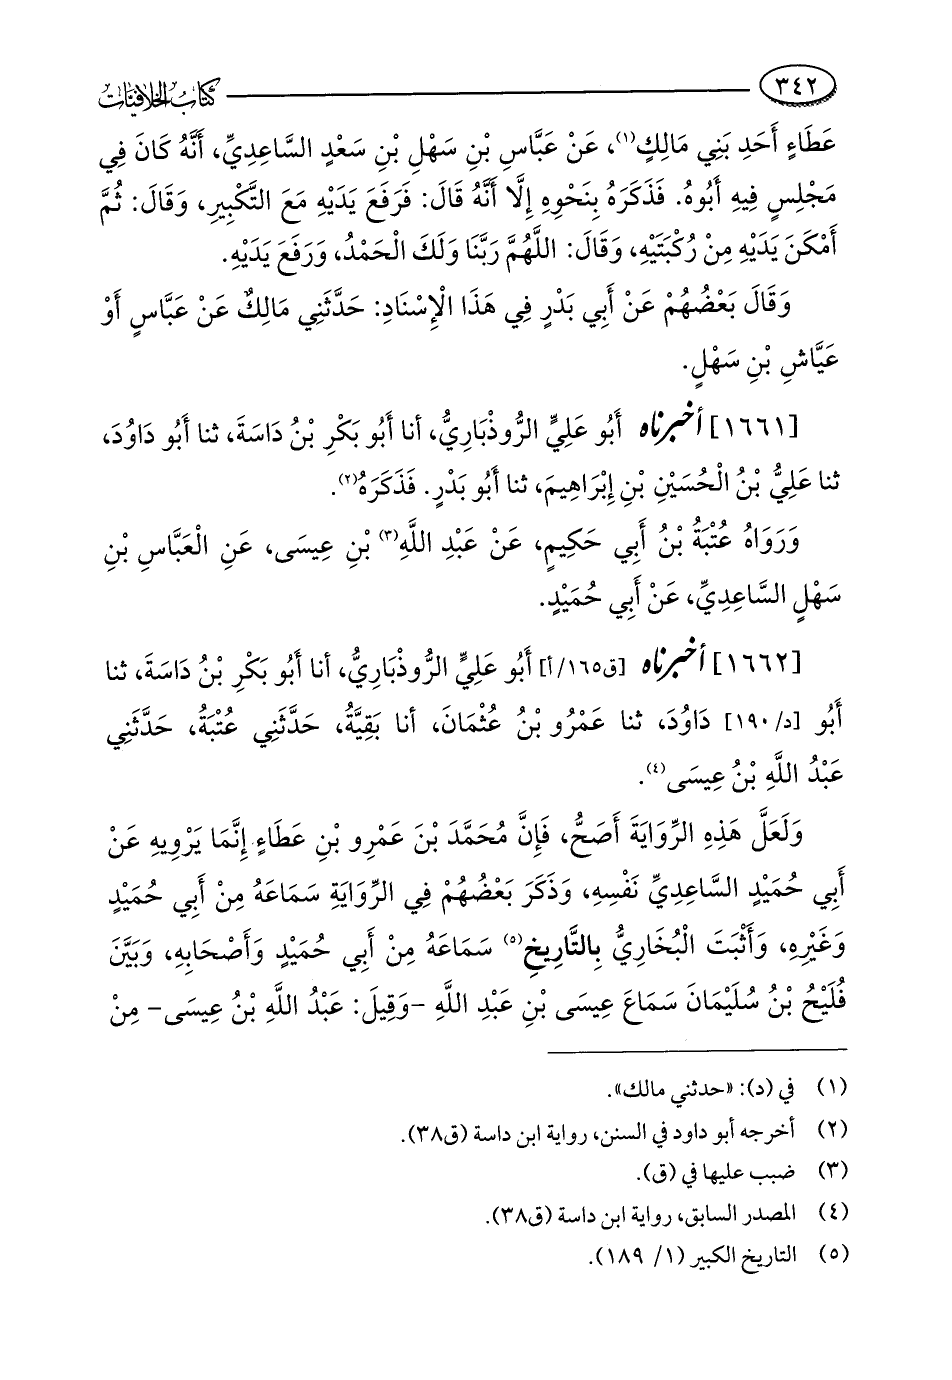 ٣٤٢ كتاب الخلافيات
عَطَاءٍ أَحَدِ بَنِي مَالِكٍ(١)، عَنْ عَبَّاسِ بْنِ سَهْلِ بْنِ سَعْدٍ السَّاعِدِيِّ، أَنَّهُ كَانَ فِي
مَجْلِسٍ فِيهِ أَبُوهُ. فَذَكَرَهُ بِنَحْوِهِ إِلَّا أَنَّهُ قَالَ: فَرَفَعَ يَدَيْهِ مَعَ التَّكْبِيرِ، وَقَالَ: ثُمَّ
أَمْكَنَ يَدَيْهِ مِنْ رُكْبَتَيْهِ، وَقَالَ: اللَّهُمَّ رَبَّنَا وَلَكَ الْحَمْدُ، وَرَفَعَ يَدَيْهِ.
وَقَالَ بَعْضُهُمْ عَنْ أَبِي بَدْرٍ فِي هَذَا الْإِسْنَادِ: حَدَّثَنِي مَالِكٌ عَنْ عَبَّاسٍ أَوْ
عَيَّاشِ بْنِ سَهْلٍ.
[١٦٦١] أخبرناه أَبُو عَلِيٍّ الرُّوذْبَارِيُّ، أنا أَبُو بَكْرِ بْنُ دَاسَةَ، ثنا أَبُو دَاوُدَ،
ثنا عَلِيُّ بْنُ الْحُسَيْنِ بْنِ إِبْرَاهِيمَ، ثنا أَبُو بَدْرٍ. فَذَكَرَهُ(٢).
وَرَوَاهُ عُتْبَةُ بْنُ أَبِي حَكِيمٍ، عَنْ عَبْدِ اللَّهِ(٣) بْنِ عِيسَى، عَنِ الْعَبَّاسِ بْنِ
سَهْلٍ السَّاعِدِيِّ، عَنْ أَبِي حُمَيْدٍ.
[١٦٦٢] أخبرناه [ق١٦٥/أ] أَبُو عَلِيٍّ الرُّوذْبَارِيُّ، أنا أَبُو بَكْرِ بْنُ دَاسَةَ، ثنا
أَبُو [د/١٩٠] دَاوُدَ، ثنا عَمْرُو بْنُ عُثْمَانَ، أنا بَقِيَّةُ، حَدَّثَنِي عُتْبَةُ، حَدَّثَنِي
عَبْدُ اللَّهِ بْنُ عِيسَى(٤).
وَلَعَلَّ هَذِهِ الرِّوَايَةَ أَصَحُّ، فَإِنَّ مُحَمَّدَ بْنَ عَمْرِو بْنِ عَطَاءٍ إِنَّمَا يَرْوِيهِ عَنْ
أَبِي حُمَيْدٍ السَّاعِدِيِّ نَفْسِهِ، وَذَكَرَ بَعْضُهُمْ فِي الرِّوَايَةِ سَمَاعَهُ مِنْ أَبِي حُمَيْدٍ
وَغَيْرِهِ، وَأَثْبَتَ الْبُخَارِيُّ بِالتَّارِيخِ(٥) سَمَاعَهُ مِنْ أَبِي حُمَيْدٍ وَأَصْحَابِهِ، وَبَيَّنَ
فُلَيْحُ بْنُ سُلَيْمَانَ سَمَاعَ عِيسَى بْنِ عَبْدِ اللَّهِ -وَقِيلَ: عَبْدُ اللَّهِ بْنُ عِيسَى- مِنْ
(١) في (د): «حدثني مالك».
(٢) أخرجه أبو داود في السنن، رواية ابن داسة (ق٣٨).
(٣) ضبب عليها في (ق).
(٤) المصدر السابق، رواية ابن داسة (ق٣٨).
(٥) التاريخ الكبير (١/ ١٨٩).